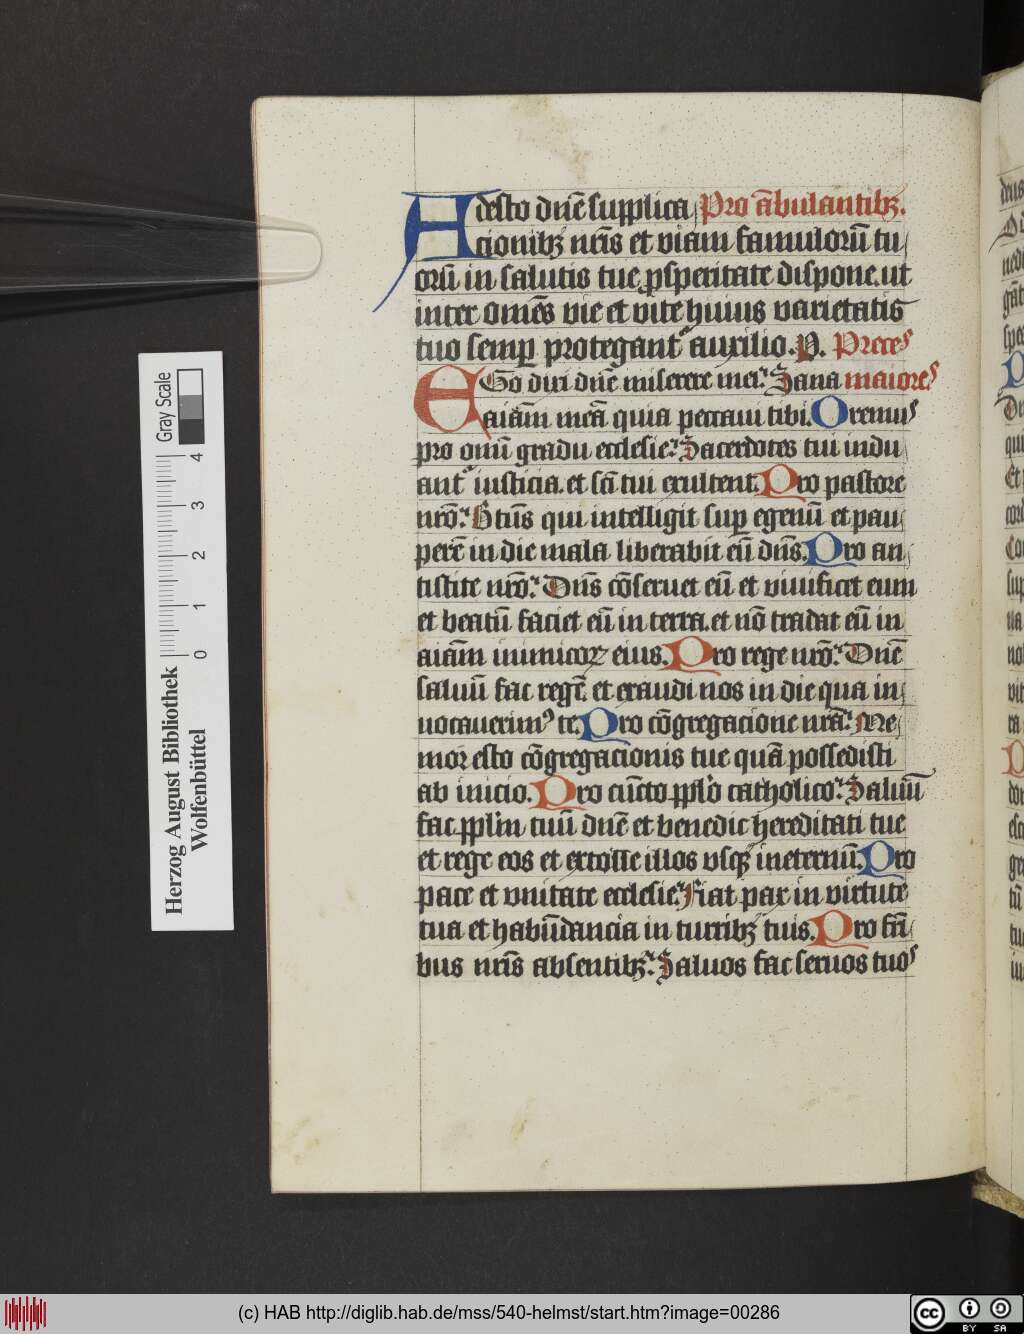 Adesto dn̄e supplica Pro ābulantibꝫ.
cionibꝫ nr̄is et viam famulorū tu
orū in salutis tue ꝓsperitate dispone. ut
inter omēs vie et vite huius varietatis
tuo semꝑ protegant᷑ auxilio. P. Preces
EGo dixi dn̄e miserere mei. Sana maiores
aiām meā quia peccaui tibi. Oremus
pro omī gradu ecclesie. Sacerdotes tui indu
ant᷑ iusticia. et scī tui exultent. Pro pastore
nr̄o. Btūs qui intelligit suꝑ egenū et pau
perē in die mala liberabit eū dn̄s. Pro an
tistite nr̄o. Dn̄s cōseruet eū et viuificet eum
et beatū faciet eū in terra. et nō tradat eū in
aiām inimicoꝝ eius. Pro rege nr̄o. Dn̄e
saluū fac regē et exaudi nos in die qua in
uocauerimꝰ te. Pro cōgregacione nr̄a. Me
mor esto cōgregacionis tue quā possedisti
ab inicio. Pro cūcto pplō catholico. Saluū
fac pplm̄ tuū dn̄e et benedic hereditati tue
et rege eos et extolle illos vsqꝫ ineternū. Pro
pace et vnitate ecclesie. Fiat pax in virtute
tua et habūdancia in turribꝫ tuis. Pro fr̄i
bus nr̄is absentibꝫ. Saluos fac seruos tuos
Herzog August Bibliothek
Wolfenbüttel
Gray Scale
0 1 2 3 4
(c) HAB http://diglib.hab.de/mss/540-helmst/start.htm?image=00286
cc BY SA